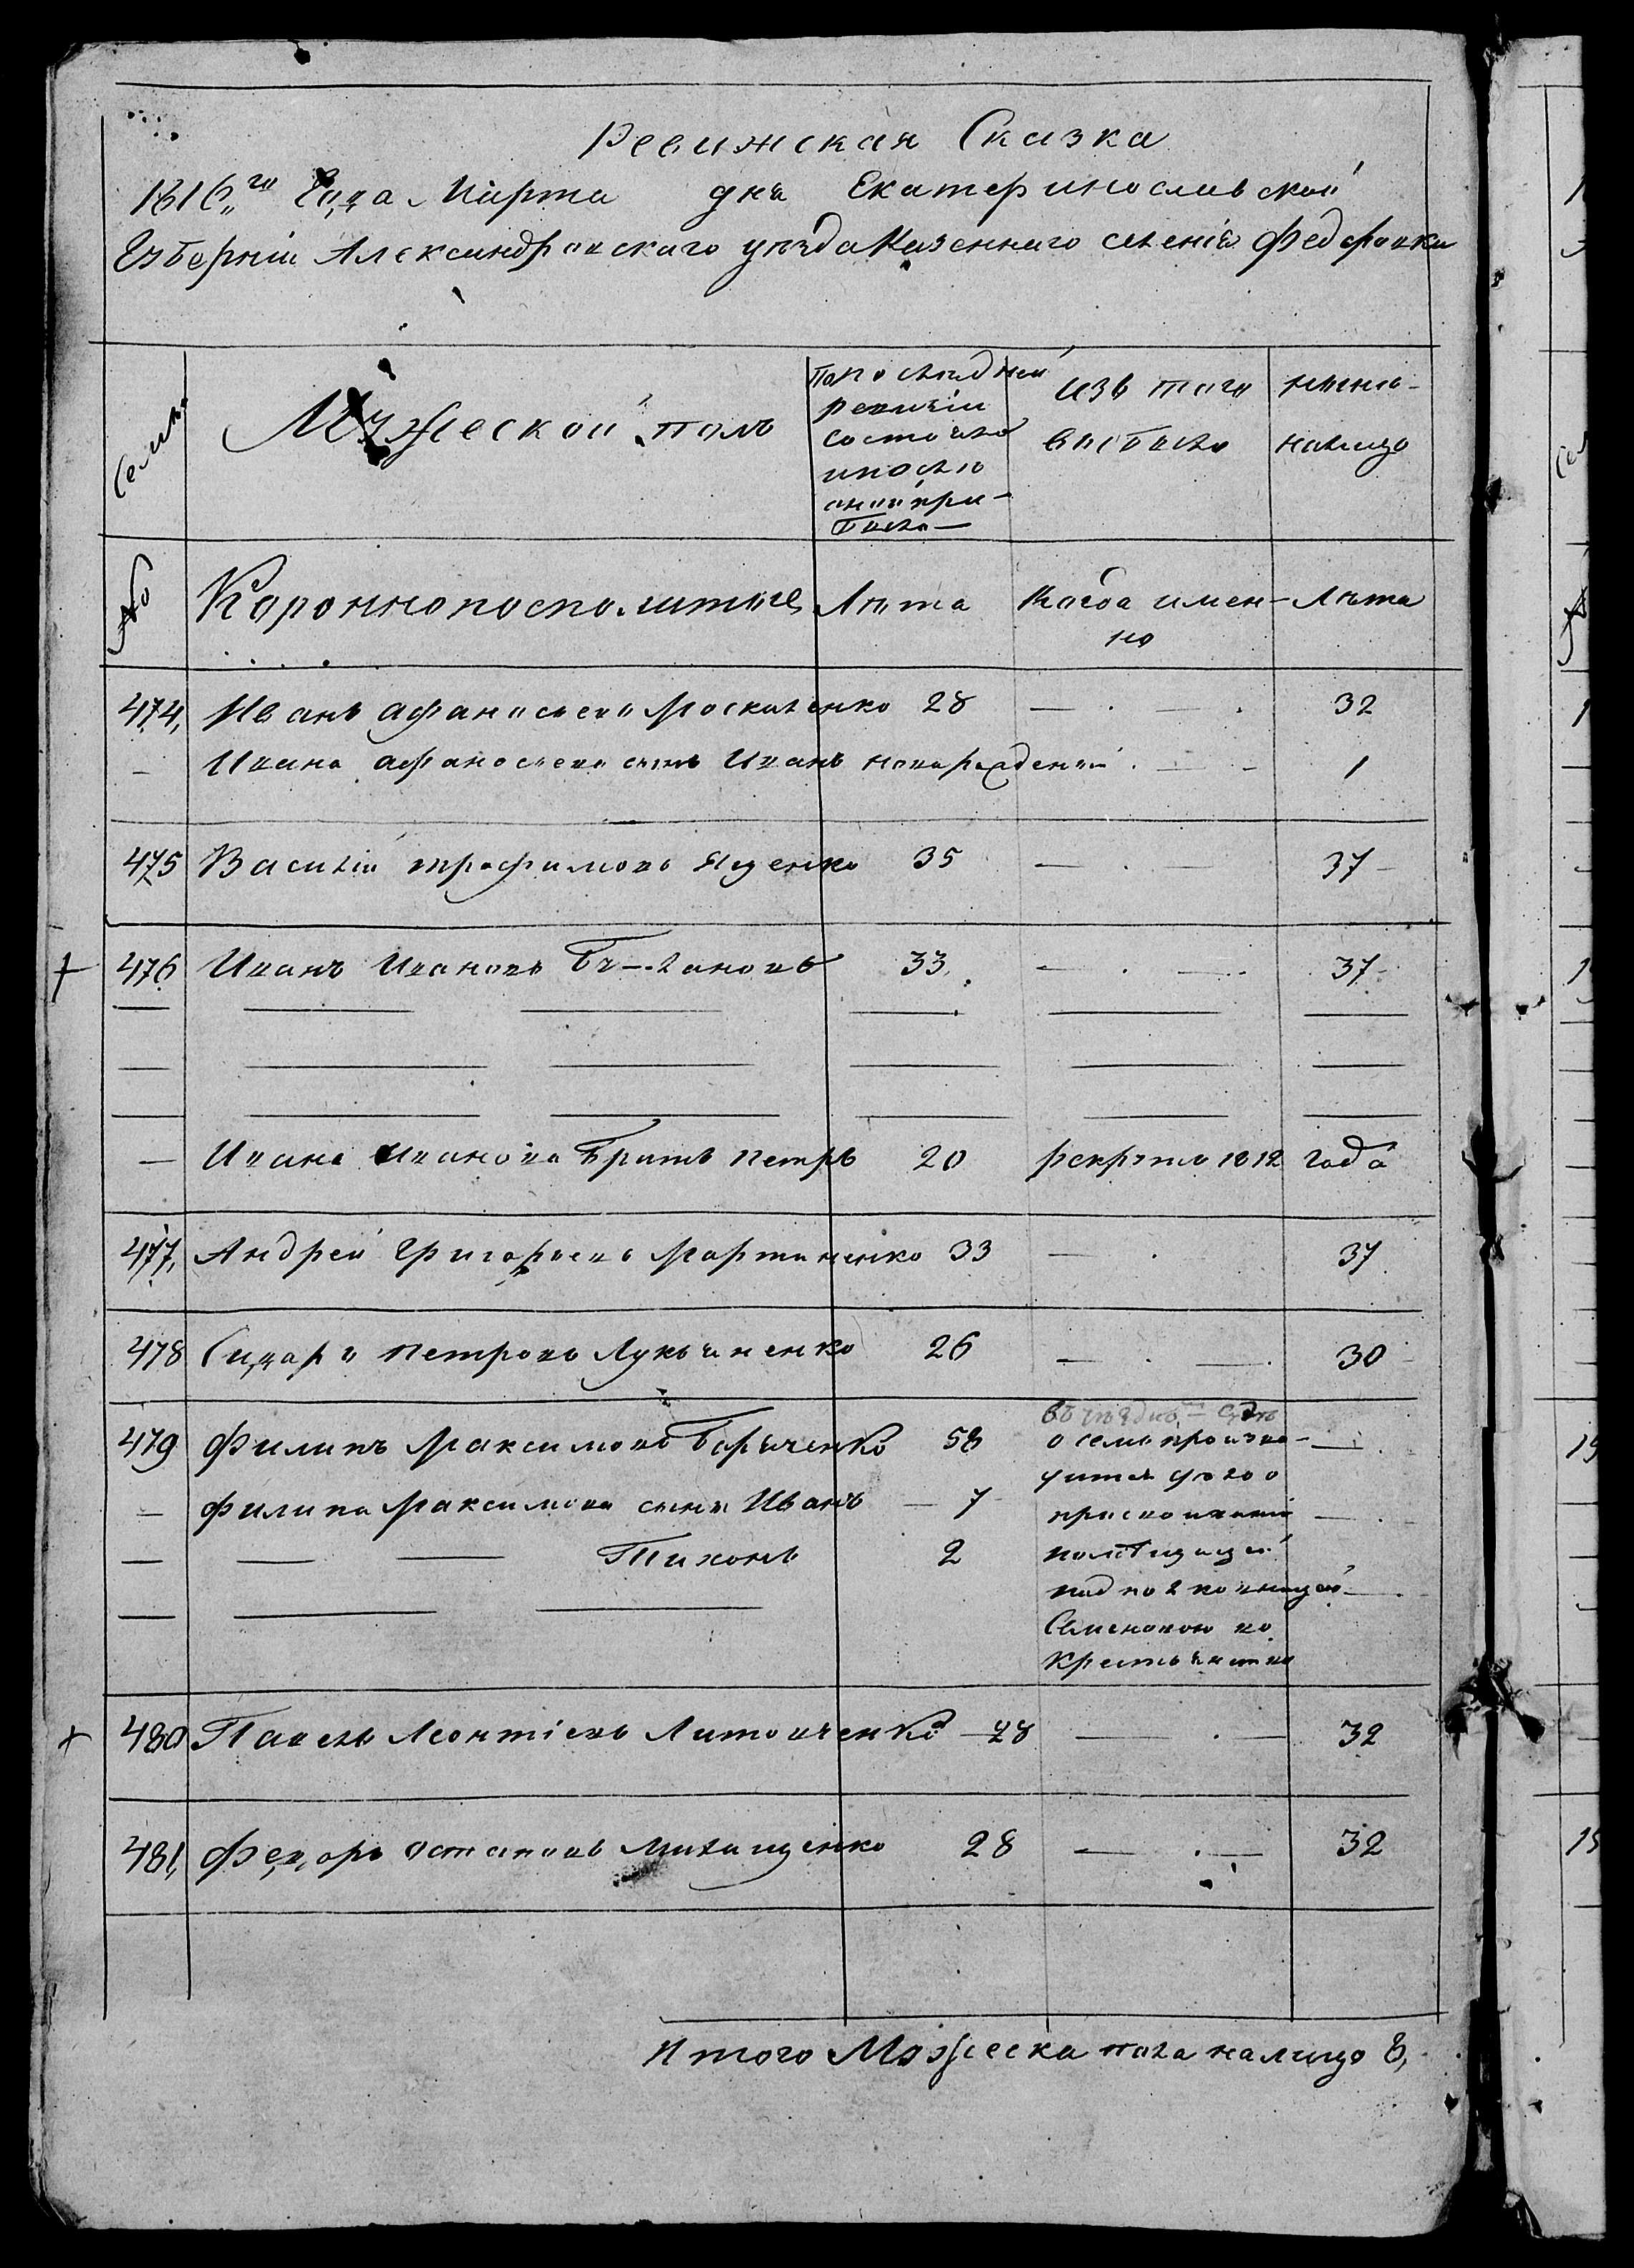 Ревижская Сказка
1816„го Года Марта дня Екатеринославской
Губерніи Александровскаго уѣзда Казеннаго селенія Федоровки
Семьи
Мужеской полъ
По последней
ревизіи
состояло
и после
оной при-
было
изъ того
выбыло
ныне
налицо
№
Короннопосполитые
Лѣта
Когда имен-
но
Лѣта
474, Иванъ Афанасьевъ Москаленко 28 — . — . 32
— Ивана Афанасьева сынъ Иванъ новорожденный . — - 1
475 Василій Трофимовъ Яценко 35 — . — 37 -
+ 476 Иванъ Ивановъ 33. — . — . 37 -
— Ивана Иванова Братъ Петръ 20 рекрутъ 1812 года
477, Андрей Григорьевъ Мартыненко 33 — . 37
478 Сидоръ Петровъ Лукьяненко 26 — . — . 30
479 Филипъ Максимовъ 58 —
о семъ произво-
дится дѣло о
— Филипа Максимова сынъ Иванъ — 7 — .
— — — Тихонъ 2
Семеновою
+ 480 Павелъ Леонтіевъ Литовченко — 28 — . — 32
481, Федоръ Остаповъ 28 — . — 32
Итого Мужеска пола налицо 8,